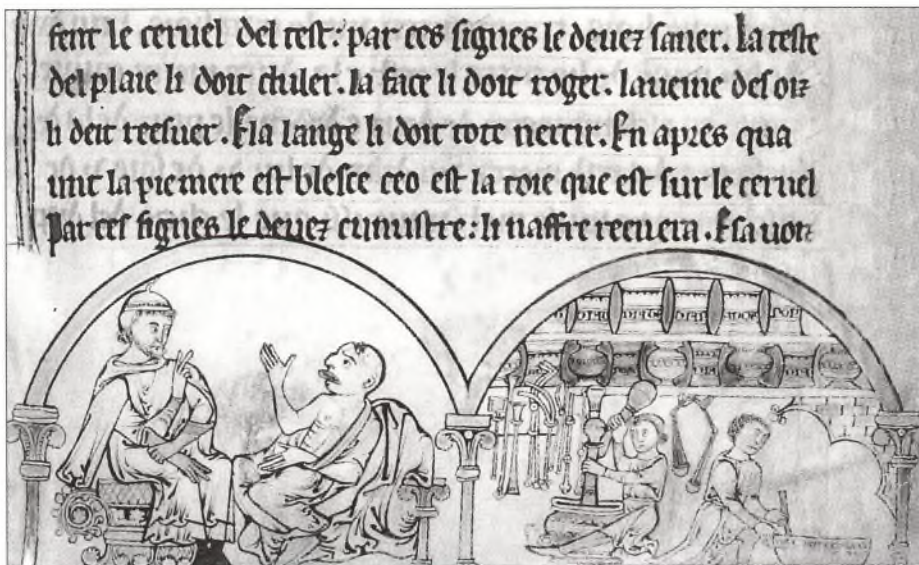 sent le ceruel del test: par ces signes le deuez sauer. La teste
del plaie li doit chuler. la face li doit roger. laueine des oiz
li deit reesuer. E la lange li doit tote nercir. En apres qua
unt la piemere est blesce ceo est la toie que est sur le ceruel
Par ces signes le deuez cunustre: li naffre recuera. E sa uoiz